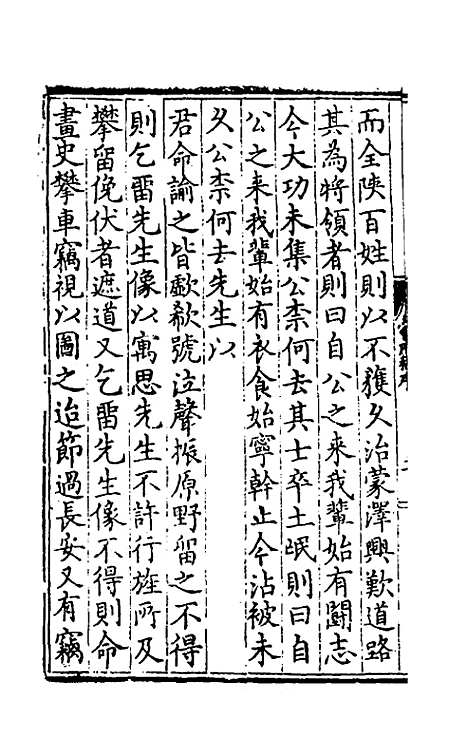 而全陜百姓則以不獲久治蒙澤興歎道路
其為將領者則曰自公之来我輩始有鬪志
今大功未集公柰何去其士卒土㞸則曰自
公之来我輩始有衣食始寧幹止今沾被未
久公柰何去先生以
君命諭之皆歔欷號泣聲振原野留之不得
則乞畱先生像以寓思先生不許行旌所及
攀留俛伏者遮道又乞畱先生像不得則命
畫史攀車竊視以圖之迨節過長安又有竊